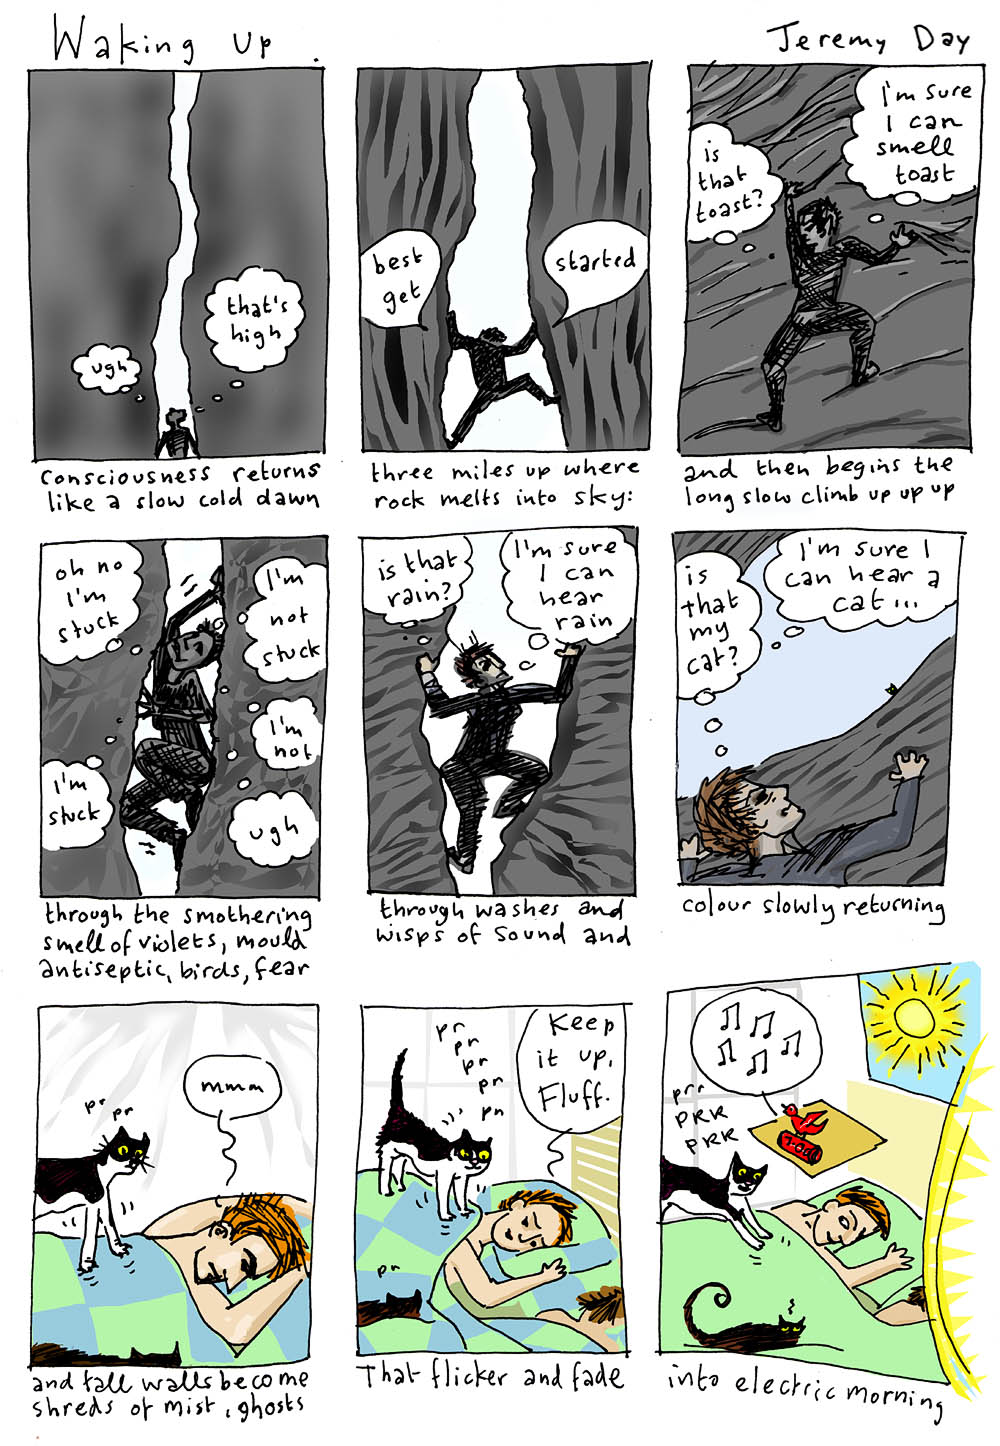 Waking up.
Jeremy Day
ugh
that's
high
consciousness returns
like a slow cold dawn
best
get
started
three miles up where
rock melts into sky:
is
that
toast?
I'm sure
I can
smell
toast
and then begins the
long slow climb up up up
oh no
I'm
stuck
I'm
not
stuck
I'm
stuck
I'm
not
ugh
through the smothering
smell of violets, mould
antiseptic, birds, fear
is that
rain?
I'm sure
I can
hear
rain
through washes and
wisps of sound and
is
that
my
cat?
I'm sure I
can hear a
cat...
colour slowly returning
pr
pr
mmm
and tall walls become
shreds of mist, ghosts
pr
pr
pr
pr
pr
Keep
it up,
Fluff.
pr
That flicker and fade
prr
PRR
PRR
into electric morning